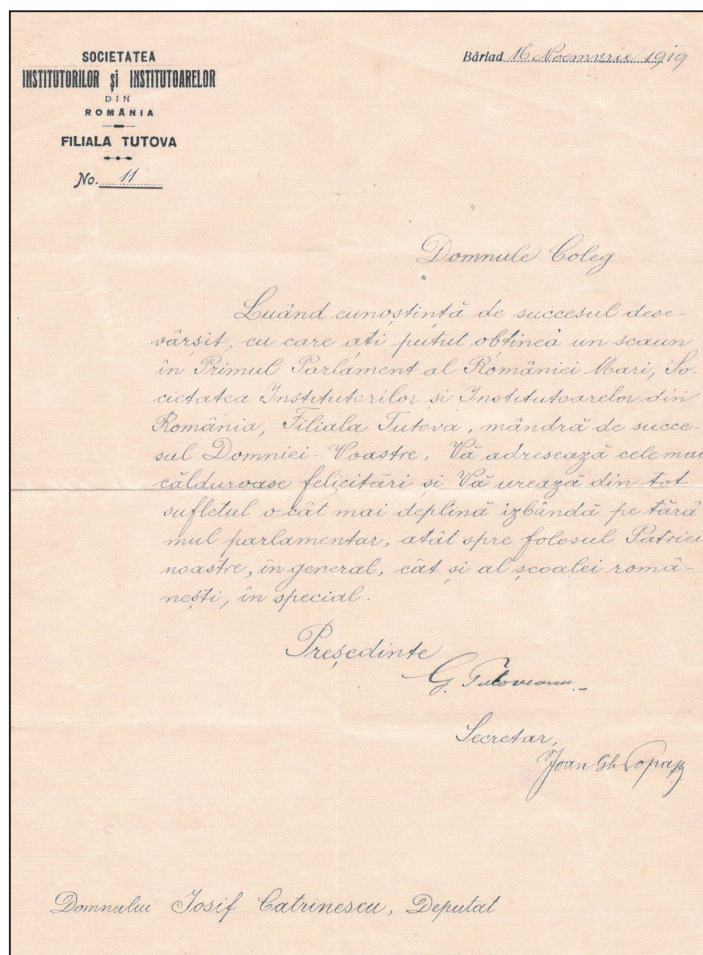 SOCIETATEA
INSTITUTORILOR şi INSTITUTOARELOR
DIN
ROMÂNIA
FILIALA TUTOVA
No. 11
Bârlad 16 Noemvrie 1919
Domnule Coleg
Luând cunoştinţă de succesul dese-
vârşit, cu care aţi putut obţineà un scaun
în Primul Parlament al României Mari, So-
cietatea Institutorilor si Institutoarelor din
România, Filiala Tutova, mândră de succe-
sul Domniei-Voastre, Vă adresează cele mai
călduroase felicitări si Vă urează din tot
sufletul o cât mai deplină izbândă pe tărâ
mul parlamentar, atât spre folosul Patriei
noastre, în general, cât şi al şcoalei româ-
neşti, în special.
Preşedinte
G. Tutoveanu
Secretar,
Ioan Gh.
Domnului Iosif Catrinescu, Deputat